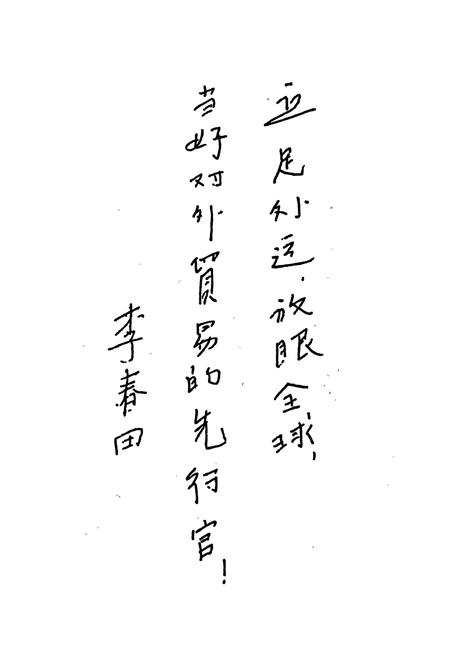 立足外运,放眼全球,
当好对外貿易的先行官!
李春田